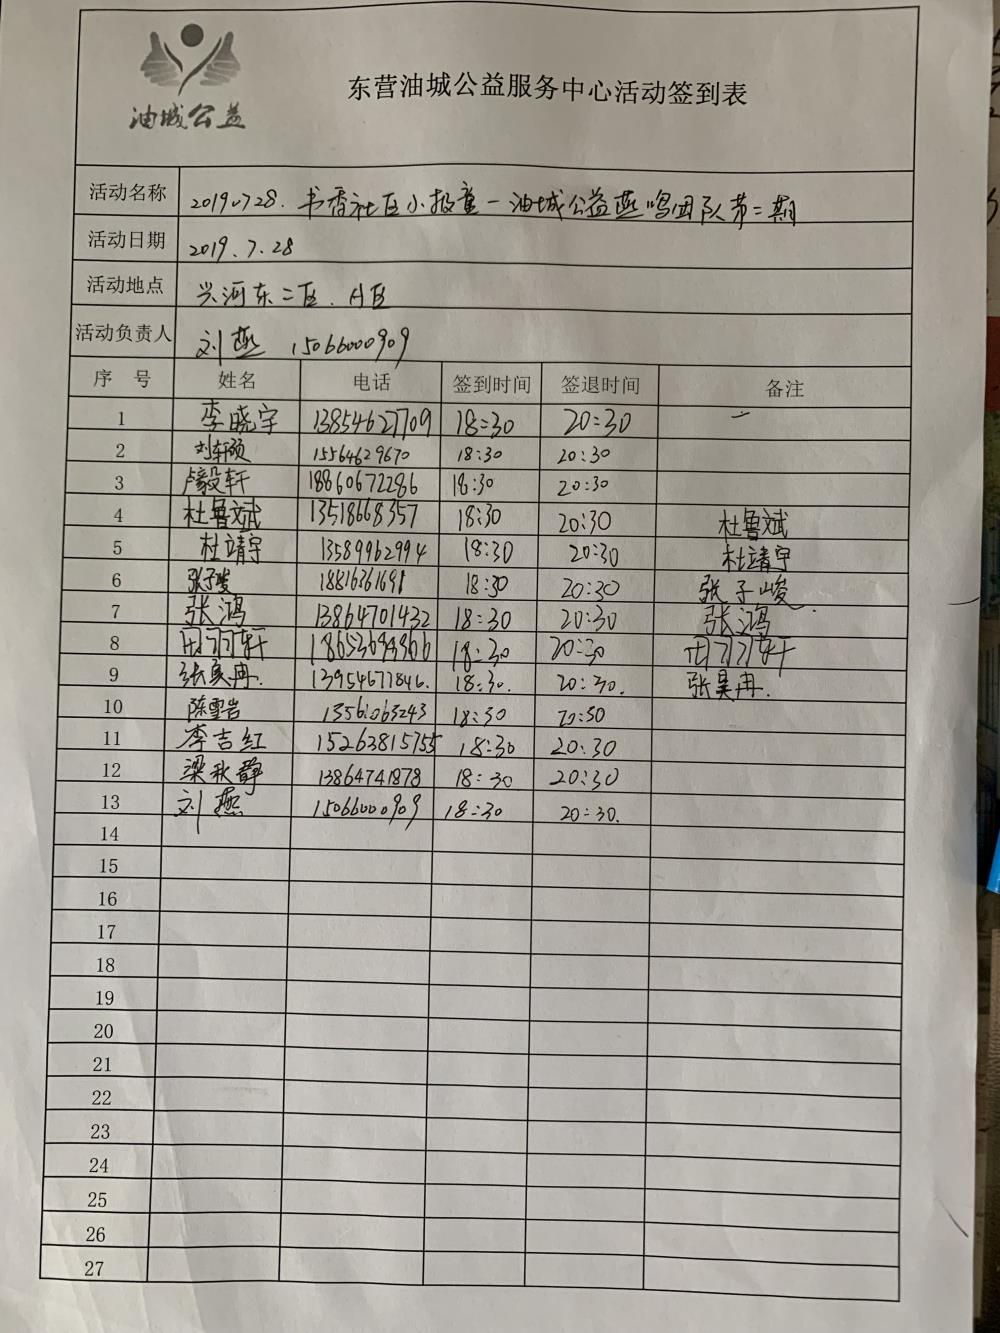 油城公益
东营油城公益服务中心活动签到表
活动名称 2019.7.28. 书香社区小报童-油城公益燕鸣团队第二期
活动日期 2019.7.28
活动地点 兴河东二区.A区
活动负责人 刘燕 15066000909
序号 姓名 电话 签到时间 签退时间 备注
1 李晓宇 13854627709 18:30 20:30
2 刘轩硕 15564629670 18:30 20:30
3 卢毅轩 18860672286 18:30 20:30
4 杜鲁斌 13518668357 18:30 20:30 杜鲁斌
5 杜靖宇 13589962994 18:30 20:30 杜靖宇
6 张子峻 18:30 20:30 张子峻
7 张鸿 13864701432 18:30 20:30 张鸿
8 18:30 20:30
9 张昊冉. 13954677846. 18:30. 20:30. 张昊冉.
10 陈雪岩 13561063243 18:30 20:30
11 李吉红 15263815755 18:30 20:30
12 梁秋静 13864741878 18:30 20:30
13 刘燕 15066000909 18:30 20:30.
14
15
16
17
18
19
20
21
22
23
24
25
26
27